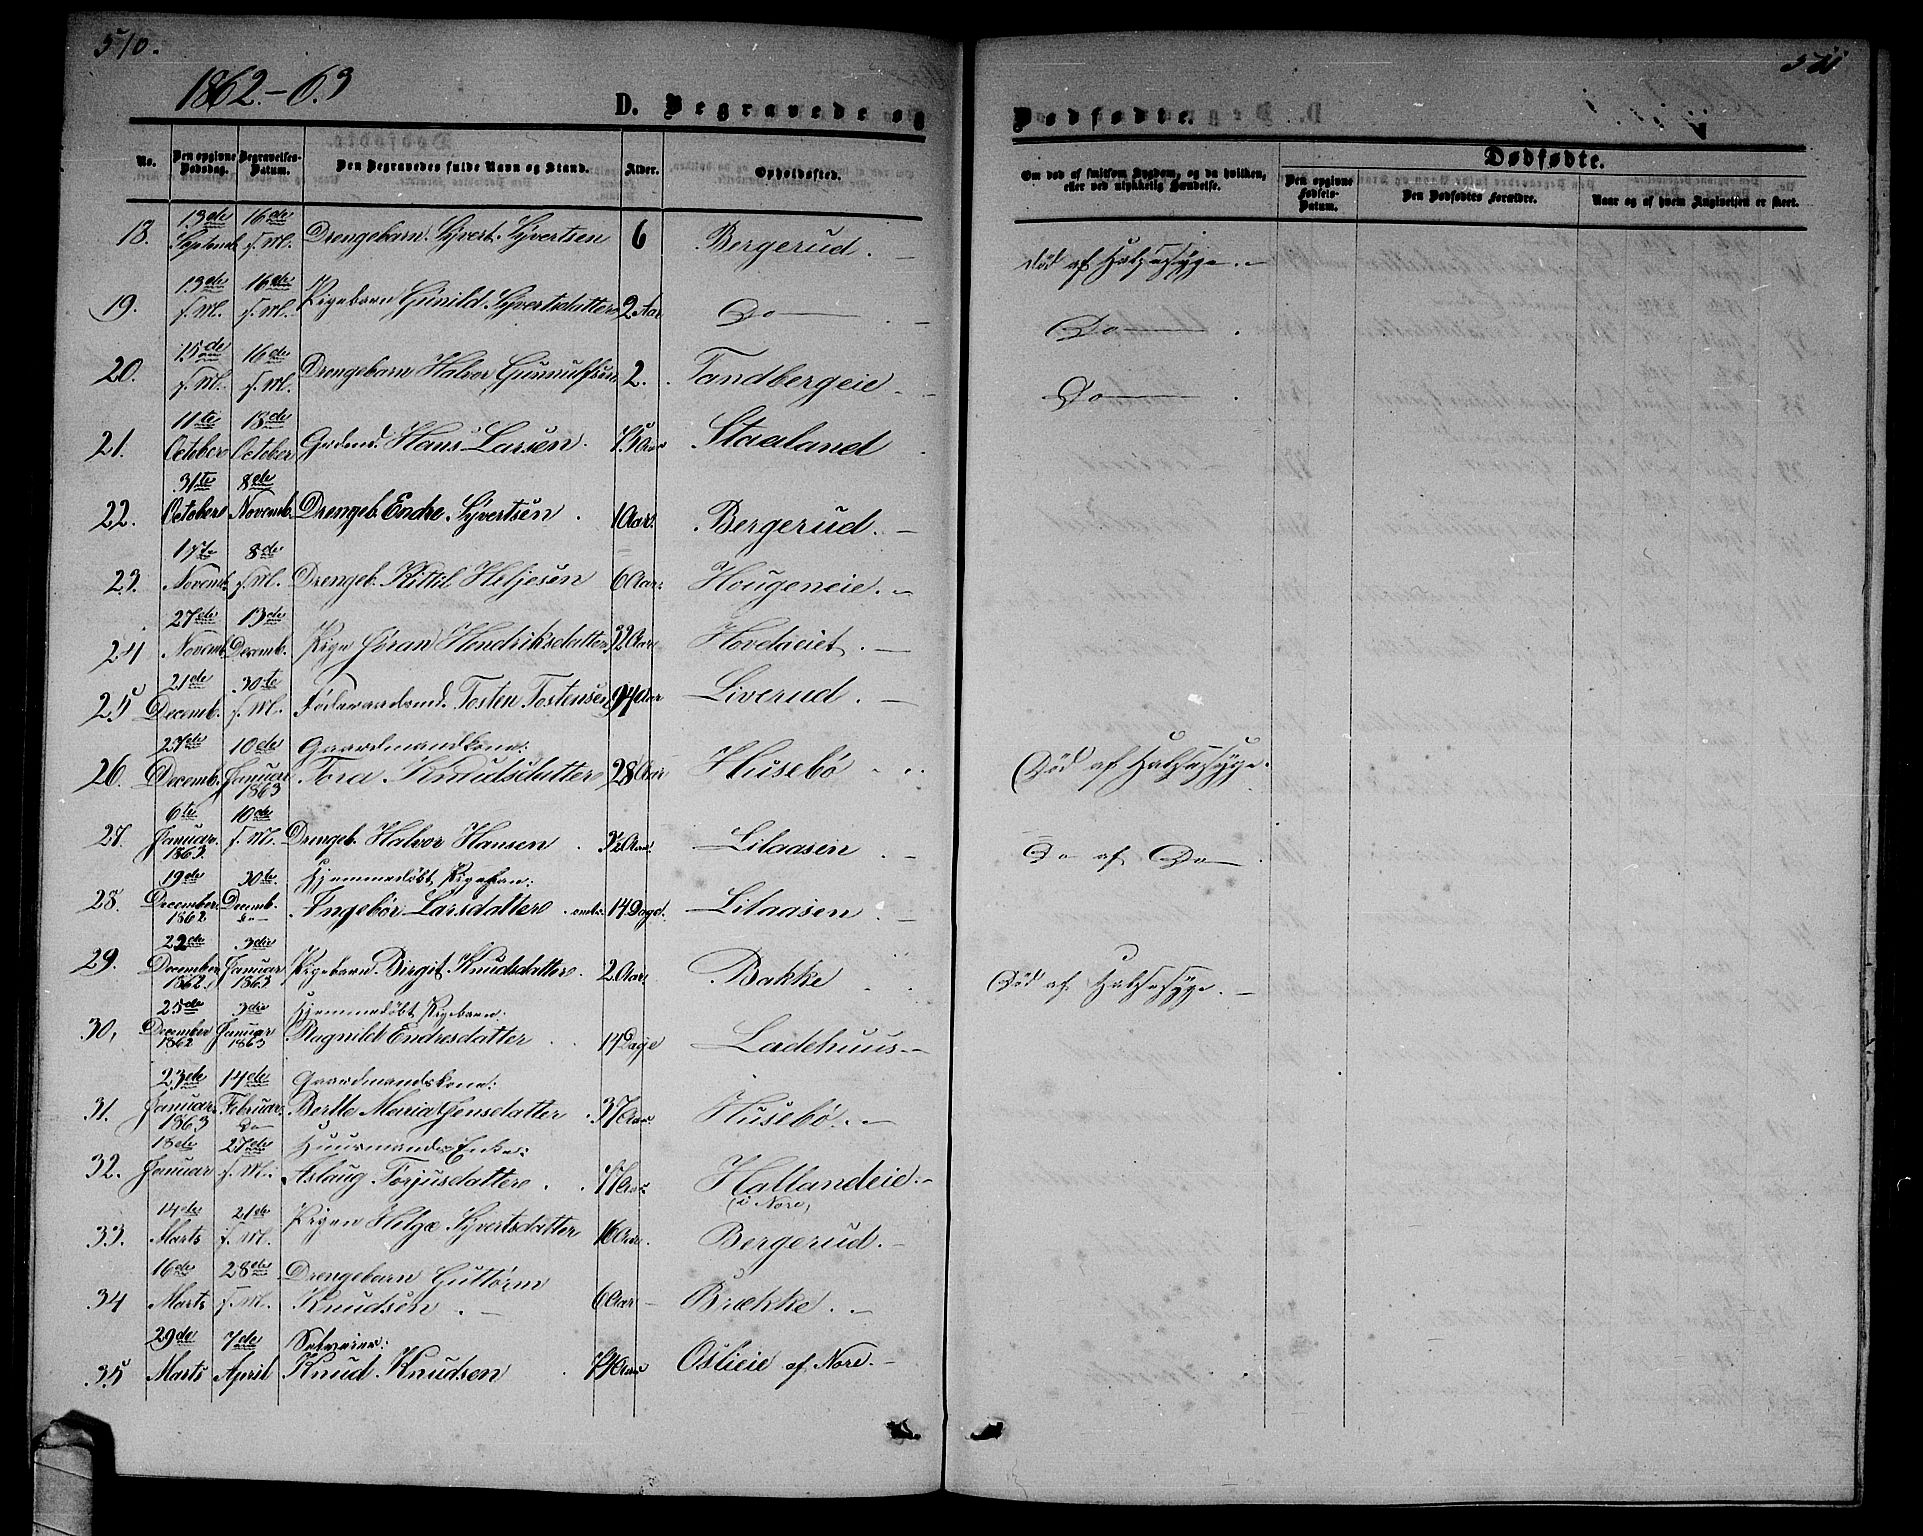 510.
511
1862.-63
D. Begravede og
Dødfødte.
No.
Den opgivne Dødsdag.
Begravelses-Datum.
Den Begravedes fulde Navn og Stand.
Alder.
Opholdssted.
Om død af smitsom Sygdom, og da hvilken, eller ved ulykkelig Hændelse.
Dødfødte.
Den opgivne Fødsels-Datum.
Den Dødfødtes Forældre.
Naar og af hvem Angivelsen er skeet.
18. 13de Septemb 16de f. M. Drengebarn. Syvert. Syvertsen 6 Bergerud. — død af Halssyge. —
19. 13de f. M. 16de f. M. Pigebarn Gunild. Syvertsdatter 2 Aar Do — . — Do — .
20. 15de f. M. 16de f. M. Drengebarn Halvor Gunnulfsen 2. Tandbergeie — Do — .
21. 11te October 18de October Hans Larsen. Staaland
22. 31te October 8de Novemb. Drengeb. Endre. Syvertsen. 1 Aar. Bergerud. —
23. 1ste Novemb. 8de f. M. Drengeb. Kittil Heljesen 6 Aar. Hougeneie. —
24 27de Novemb. 13de Decemb. Pige Jøran Hendriksdatter 32 Aar Hovdaeiet. —
25 21de Decemb. 30te f. M. Føderaadsmd. Tosten Tostensen 94 Aar Liverud. —
26. 27de Decemb. 10de Januar 1863 Gaardmandkone: Tora Knudsdatter 28 Aar Husebø Død af Halssyge.
27. 6te Januar 1863 10de f. M. Drengeb. Halvor Hansen. 3½ Aar. Lilaasen — Do af Do — .
28. 19de December 1862 30te Decemb. Do Hjemmedøbt Pigebarn: Ingebør Larsdatter 14 Dage. Lilaasen. —
29. 22de December 1862. 3die Januar 1863 Pigebarn. Birgit. Knudsdatter. 2 Aar Bakke Død af Halssyge. —
30, 25de December 1862 3die Januar 1863 Hjemmedøbt Pigebarn: Ragnild Endresdatter 14 Dage Ladehuus —
31. 23de Januar 1863 14de Februar Do Gaardmandskone: Berthe Maria Jensdatter. 37 Aar. Husebø. —
32. 18de Januar 27de f. M. Huusmands Enke: Aslaug Torjusdatter. Hallandeie. — (i Nore)
33. 14de Marts 21de f. M. Pigen Helge Syvertsdatter 16 Aar. Bergerud. —
34 16de Marts 28de f. M. Drengebarn Guttorm Knudsen. — 6 Aar — Brække. —
35 29de Marts 7de April Selveier: Knud. Knudsen Oslieie af Nore. —